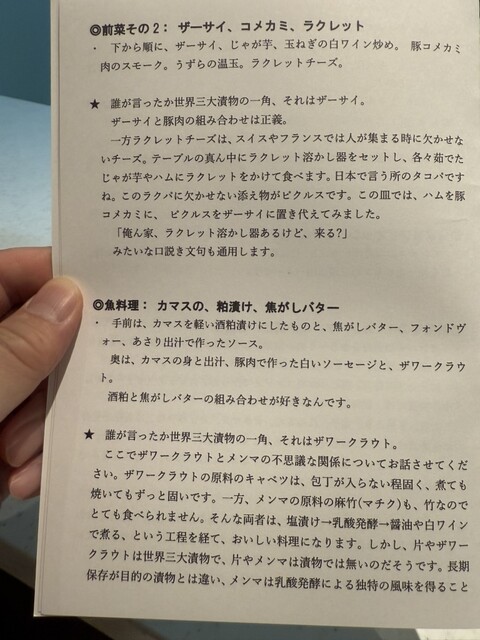 ◎前菜その2： ザーサイ、コメカミ、ラクレット
・ 下から順に、ザーサイ、じゃが芋、玉ねぎの白ワイン炒め。 豚コメカミ
肉のスモーク。うずらの温玉。ラクレットチーズ。
★ 誰が言ったか世界三大漬物の一角、それはザーサイ。
ザーサイと豚肉の組み合わせは正義。
一方ラクレットチーズは、スイスやフランスでは人が集まる時に欠かせな
いチーズ。テーブルの真ん中にラクレット溶かし器をセットし、各々茹でた
じゃが芋やハムにラクレットをかけて食べます。日本で言う所のタコパです
ね。このラクパに欠かせない添え物がピクルスです。この皿では、ハムを豚
コメカミに、 ピクルスをザーサイに置き代えてみました。
「俺ん家、ラクレット溶かし器あるけど、来る?」
みたいな口説き文句も通用します。
◎魚料理： カマスの、粕漬け、焦がしバター
・ 手前は、カマスを軽い酒粕漬けにしたものと、焦がしバター、フォンドヴ
ォー、あさり出汁で作ったソース。
奥は、カマスの身と出汁、豚肉で作った白いソーセージと、ザワークラウ
ト。
酒粕と焦がしバターの組み合わせが好きなんです。
★ 誰が言ったか世界三大漬物の一角、それはザワークラウト。
ここでザワークラウトとメンマの不思議な関係についてお話させてくだ
さい。ザワークラウトの原料のキャベツは、包丁が入らない程固く、煮ても
焼いてもずっと固いです。一方、メンマの原料の麻竹(マチク)も、竹なので
とても食べられません。そんな両者は、塩漬け→乳酸発酵→醤油や白ワイン
で煮る、という工程を経て、おいしい料理になります。しかし、片やザワー
クラウトは世界三大漬物で、片やメンマは漬物では無いのだそうです。長期
保存が目的の漬物とは違い、メンマは乳酸発酵による独特の風味を得ること